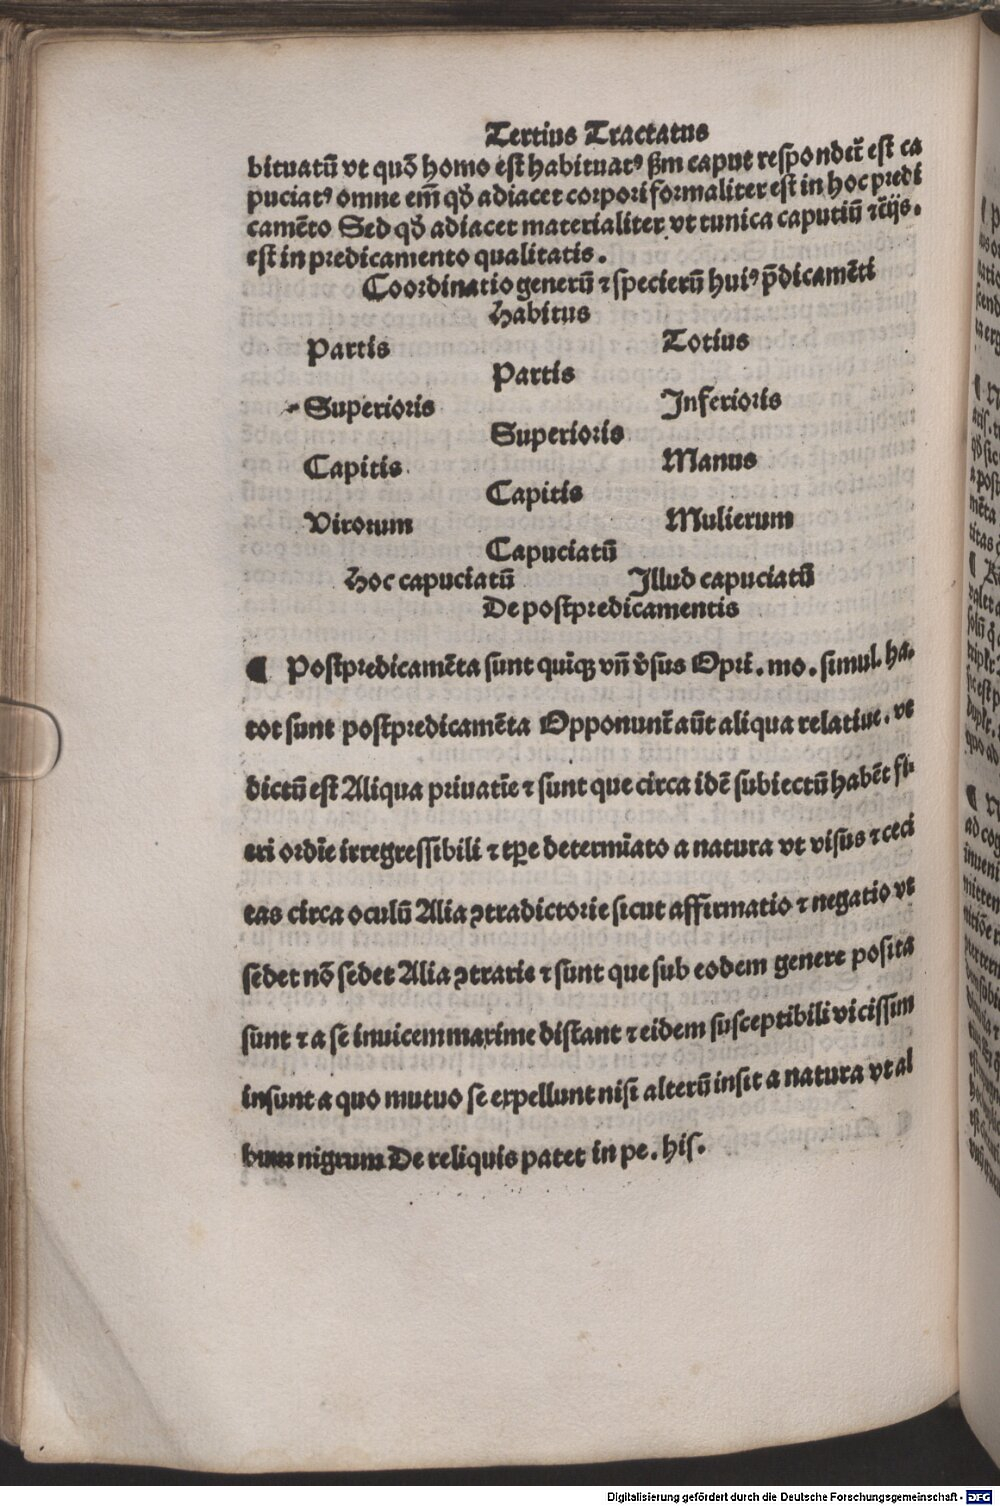 Tertius Tractatus
bituatū vt quō homo est habituatꝰ ẞm caput respondet̄ est ca
puciatꝰ omne em̄ qď adiacet corpori formaliter est in hoc predi
camēto Sed qď adiacet materialiter vt tunica caputiū ⁊c̄ijs.
est in predicamento qualitatis.
Coordinatio generū ⁊ specierū huiꝰ p̄dicamēti
Habitus
Partis Totius
Partis
Superioris Inferioris
Superioris
Capitis Manus
Capitis
Virorum Mulierum
Capuciatū
Hoc capuciatū Illud capuciatū
De postpredicamentis
¶ Postpredicamēta sunt quiqꝫ vn̄ v̄sus Opri̅. mo. simul. ha.
tot sunt postpredicamēta Opponunt̄ aūt aliqua relatiue. vt
dictū est Aliqua priuatīe ⁊ sunt que circa idē subiectū habēt fi
eri ordīe irregressibili ⁊ tꝑe determīato a natura vt visus ⁊ ceci
tas circa oculū Alia ꝯtradictorie sicut affirmatio ⁊ negatio vt
sedet nō sedet Alia ꝯtrarie ⁊ sunt que sub eodem genere posita
sunt ⁊ a se inuicem maxime distant ⁊ eidem susceptibili vicissim
insunt a quo mutuo se expellunt nisi alterū insit a natura vt al
bum nigrum De reliquis patet in pe. his.
Digitalisierung gefördert durch die Deutsche Forschungsgemeinschaft - DFG